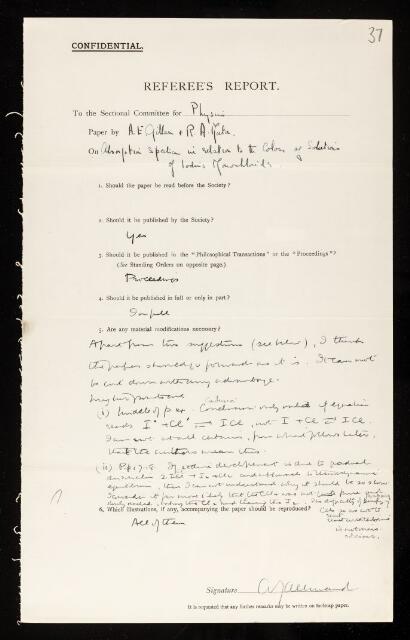 37
CONFIDENTIAL.
REFEREE'S REPORT.
To the Sectional Committee for Physics
Paper by A. E. Gillam & R. A. Morton
On Absorption Spectra in relation to the Colour of Solutions
of Iodine Monochloride.
1. Should the paper be read before the Society?
2. Should it be published by the Society?
Yes
3. Should it be published in the "Philosophical Transactions" or the "Proceedings"?
(See Standing Orders on opposite page.)
Proceedings
4. Should it be published in full or only in part?
In full
5. Are any material modifications necessary?
Apart from two suggestions (see below), I think
the paper should go forward as it is. It can not
be cut down with any advantage.
My two points are
(i) Middle of p. Conclusion only valid if equation
reads I + Cl ⇌ ICl, not I + Cl ⇌ ICl.
I am not at all certain, from what follows below,
that the authors mean this.
(ii) Pp. 7-8. If iodine development is due to gradual
dissociation 2 ICl → I2 + Cl2
equilibrium, then I can not understand why it should be so slow.
I consider it far more likely that the CCl4 was not
6. Which illustrations, if any, accompanying the paper should be reproduced?
All of them
Signature
It is requested that any further remarks may be written on foolscap paper.